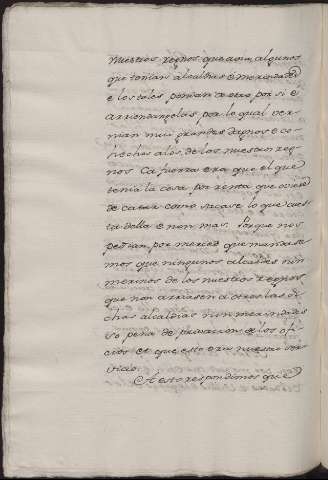 nuestros regnos que avia algunos
que tenian alcaldias e merindades
e los tales ponian otro por si e
arriendanlas, por lo qual ver-
nian mui grandes daños e co-
hechos a los de los nuestros reg-
nos Ca fuerza era que el que
tenia la cosa por renta que oviese
de catar como sacase lo que cues-
ta della e non mas. Porque nos
pedian por merced que mandase-
mos que ningunos alcaldes nin
merinos de los nuestros regnos
que non arrienden a otros las di-
chas alcaldias nin merindades
so pena de privacion de los ofi-
cios et que esto era nuestro ser-
vicio.
A esto respondimos que